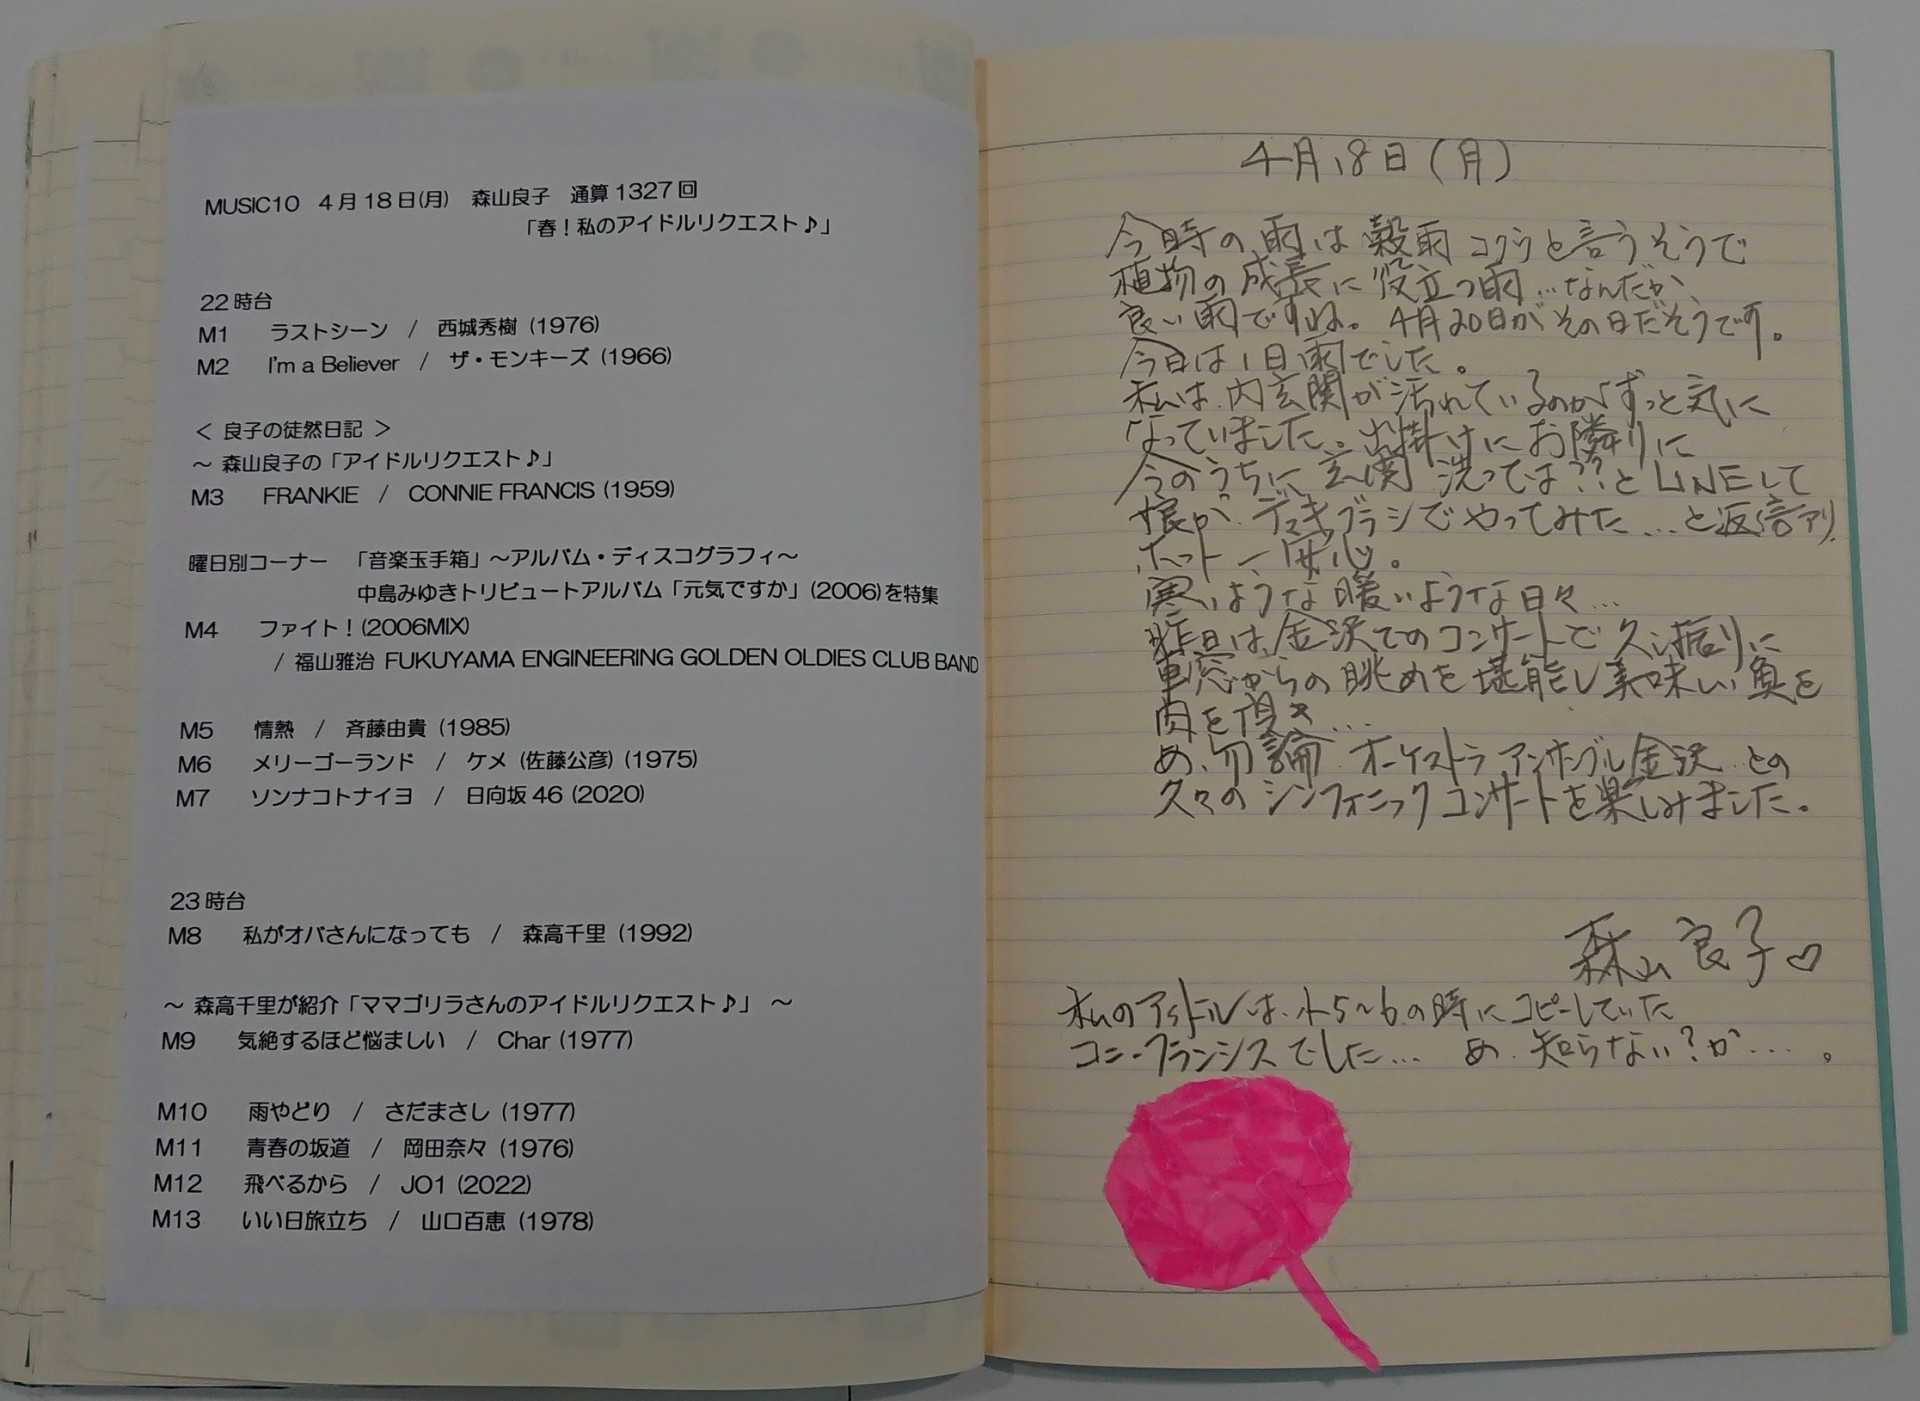 MUSIC10 4月18日(月) 森山良子 通算1327回
「春！私のアイドルリクエスト♪」
22時台
M1 ラストシーン / 西城秀樹 (1976)
M2 I'm a Believer / ザ・モンキーズ (1966)
＜ 良子の徒然日記 ＞
～ 森山良子の「アイドルリクエスト♪」
M3 FRANKIE / CONNIE FRANCIS (1959)
曜日別コーナー 「音楽玉手箱」～アルバム・ディスコグラフィ～
中島みゆきトリビュートアルバム「元気ですか」(2006)を特集
M4 ファイト！(2006MIX)
/ 福山雅治 FUKUYAMA ENGINEERING GOLDEN OLDIES CLUB BAND
M5 情熱 / 斉藤由貴 (1985)
M6 メリーゴーランド / ケメ (佐藤公彦) (1975)
M7 ソンナコトナイヨ / 日向坂46 (2020)
23時台
M8 私がオバさんになっても / 森高千里 (1992)
～ 森高千里が紹介「ママゴリラさんのアイドルリクエスト♪」 ～
M9 気絶するほど悩ましい / Char (1977)
M10 雨やどり / さだまさし (1977)
M11 青春の坂道 / 岡田奈々 (1976)
M12 飛べるから / JO1 (2022)
M13 いい日旅立ち / 山口百恵 (1978)
4月18日(月)
今時の雨は穀雨 コクウと言うそうで
植物の成長に役立つ雨…なんだか
良い雨ですね。4月20日がその日だそうです。
今日は1日雨でした。
私は、内玄関が汚れているのがずっと気に
なっていました。出掛けにお隣りに
今のうちに玄関 洗っては??とLINEして
娘が デッキブラシでやってみた…と返信アリ
ホット一安心。
寒いような暖いような日々…
昨日は、金沢でのコンサートで久し振りに
車窓からの眺めを堪能し美味しい魚を
肉を頂き…
あ、勿論 オーケストラアンサンブル金沢 との
久々のシンフォニックコンサートを楽しみました。
森山良子♡
私のアイドルは、小5～6の時にコピーしていた
コニーフランシスでした… あ、知らない？か…。